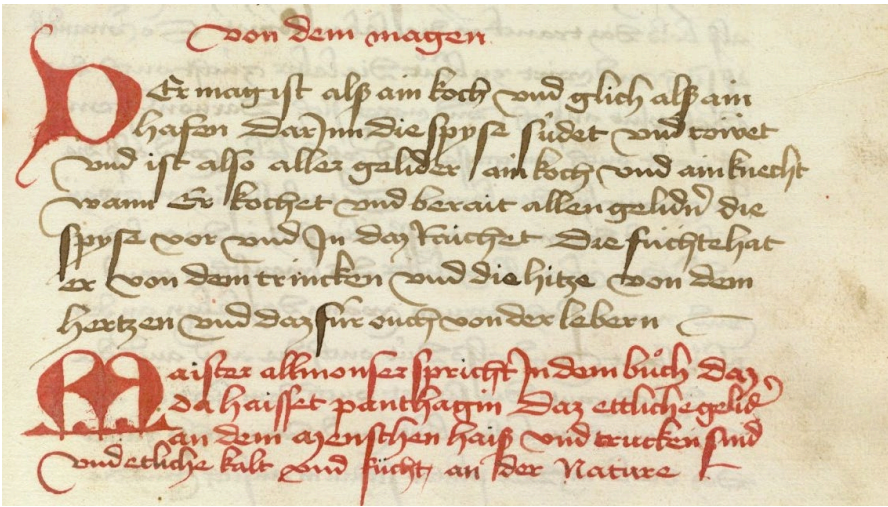 von dem magen
DEr mag ist alß ain koch vnd glich alß ain
hafen dar Jnn die spyse südet vnd
vnd ist also aller gelider ain koch vnd ain knecht
wann Er kochet vnd berait allen gelidn̄ die
spyse vor vnd Jn daz Die füchte hat
er von dem trincken vnd die hitze von dem
hertzen vnd daz für ouch von der lebern
Maister allmonser spricht Jn dem bůch daz
da haisset panthagin daz ettliche gelid̾
an dem menschen haiß vnd trucken sind
vnd etliche kalt vnd fücht an der Nature